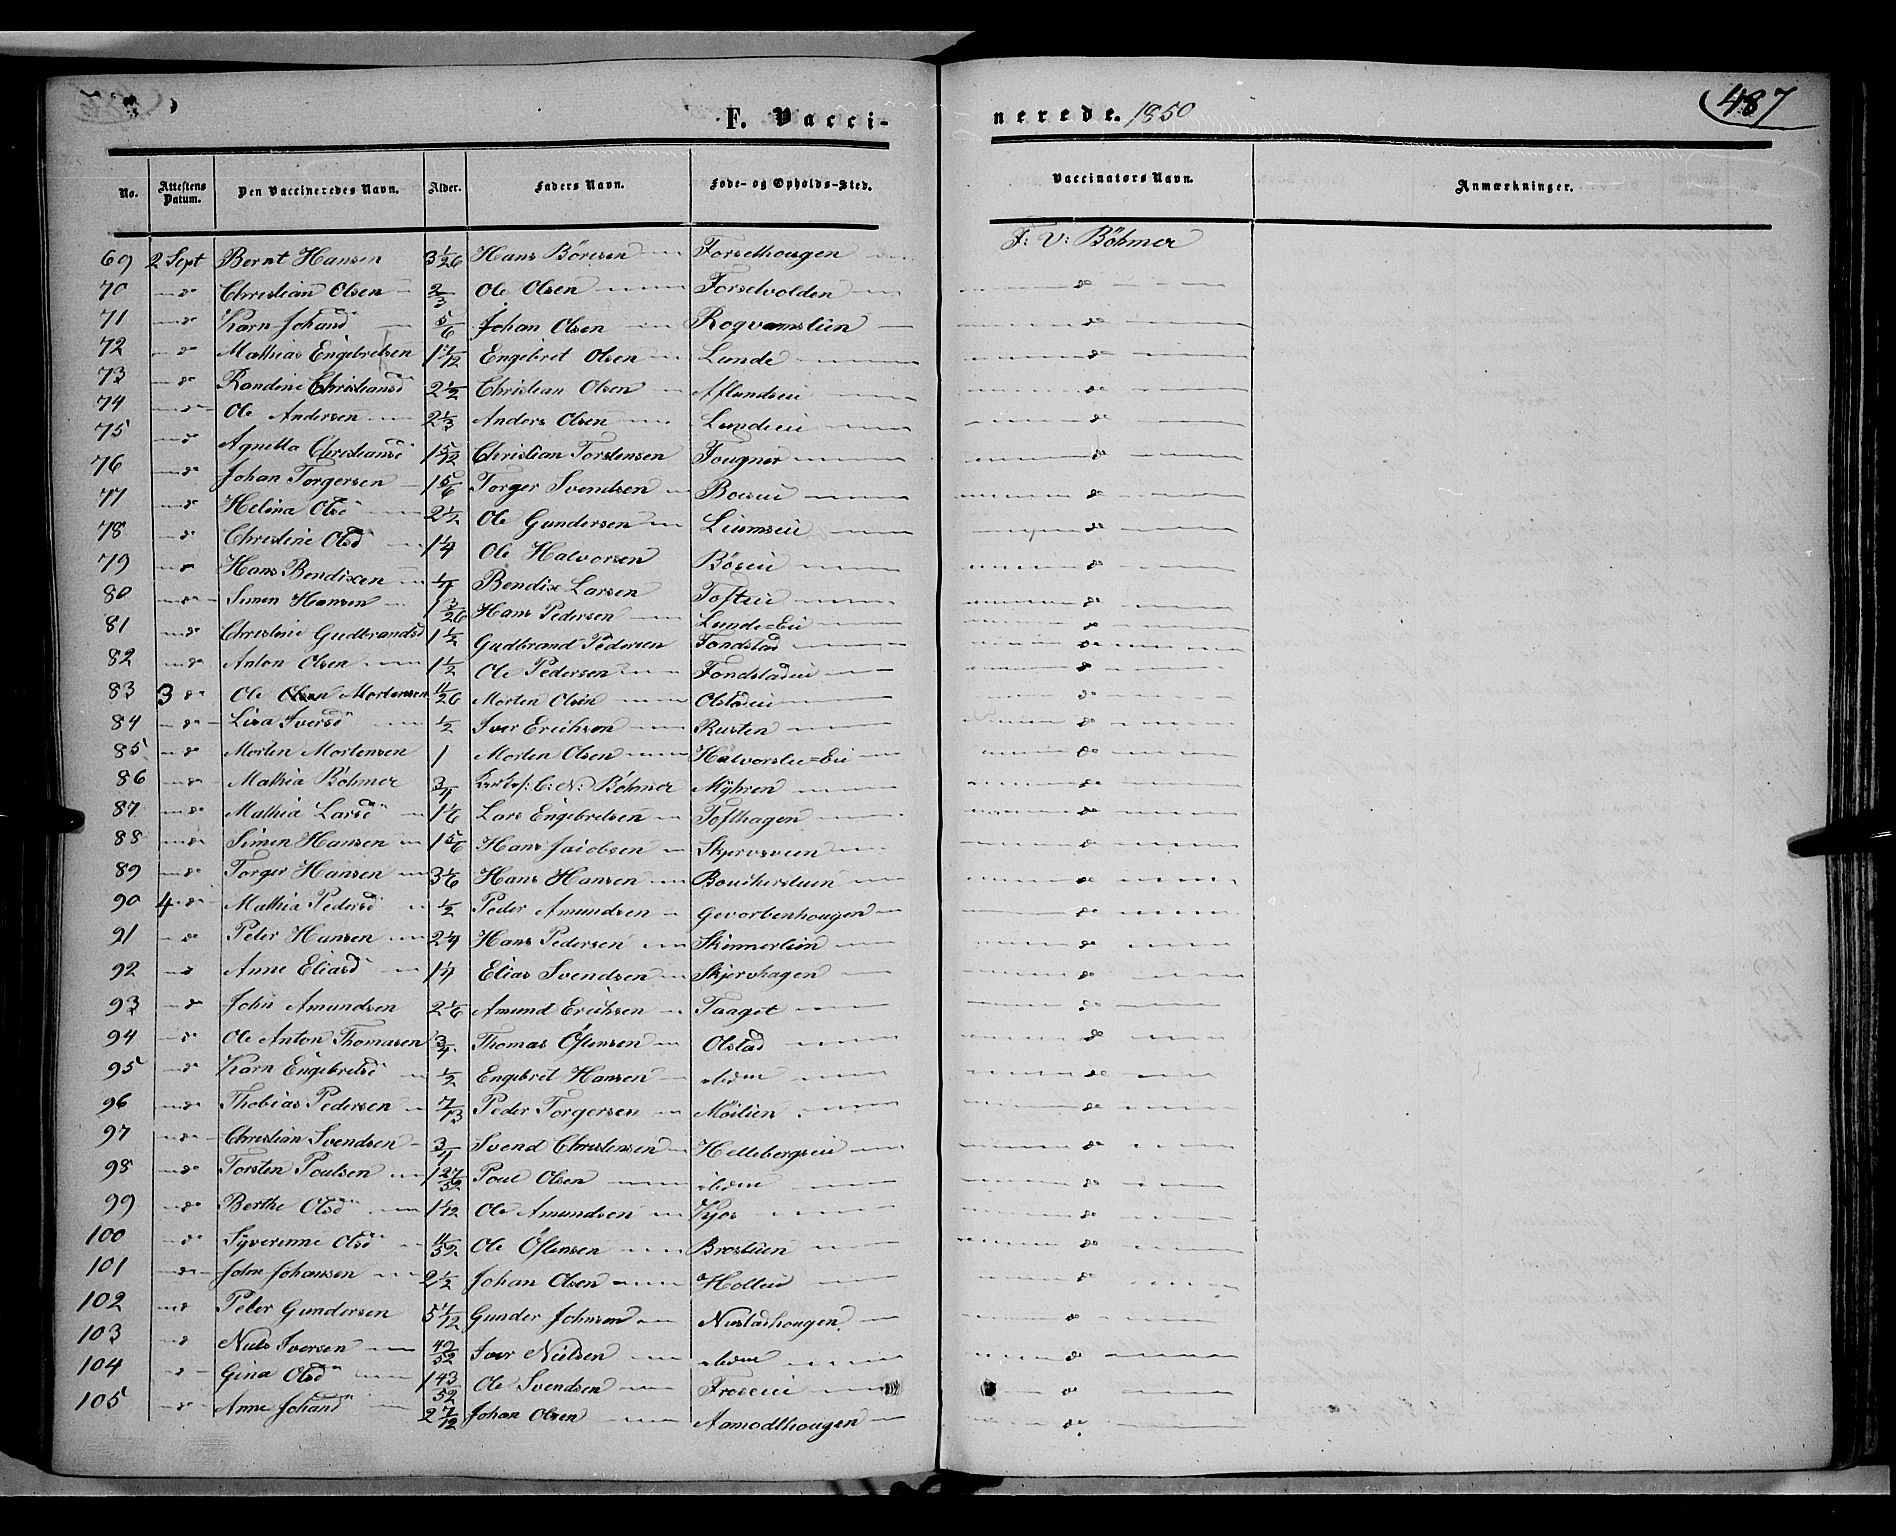 F. Vacci-
nerede. 1850
487
No. Attestens Datum. Den Vaccineredes Navn. Alder. Faders Navn. Føde- og Opholds-Sted. Vaccinatørs Navn. Anmærkninger.
69 2 Sept Bernt Hansen 3 1/26 Hans Böresen Forsethougen F: V: Böhmer
70 do Christian Olsen 2/3 Ole Olsen Forsetvolden do
71 do Karn Johansd 5/6 Johan Olsen Rogvamslien do
72 do Mathias Engebretsen 1 7/12 Engebret Olsen Lunde do
73 do Randine Christiansd 2 1/2 Christian Olsen Aflundseie do
74 do Ole Andersen 2 1/3 Anders Olsen Lundeeie do
75 do Agnetta Christiansd 1 5/12 Christian Torstensen Fougner do
76 do Johan Torgersen 1 5/6 Torger Svendsen Boeseie do
77 do Helena Olsd 2 1/2 Ole Gundersen Liumseie do
78 do Christine Olsd 1 1/4 Ole Halvorsen Böeeie do
79 do Hans Bendixen 1/4 Bendix Larsen Tofteie do
80 do Simen Hansen 1 3/26 Hans Pedersen Lunde-Eie do
81 do Christine Gudbrandsd 1 1/2 Gudbrand Pedersen Fondstad do
82 do Anton Olsen 1 1/2 Ole Pedersen Fondstadeie do
83 3 do Ole Mortensen 11/26 Morten Olsen Olstadeie do
84 do Lisa Iversd 1/2 Iver Erichson Rusten do
85 do Morten Mortensen 1 Morten Olsen Halvorslie-Eie do
86 do Mathia Böhmer 3/4 C: N: Böhmer Myhren do
87 do Mathia Larsd 1 1/6 Lars Engebretsen Tofthagen do
88 do Simen Hansen 1 5/6 Hans Jacobsen Skjervsveen do
89 do Torger Hansen 3 1/6 Hans Hansen do
90 4 do Mathia Pedersd 1/2 Peder Amundsen Gevorbenhougen do
91 do Peter Hansen 2 1/4 Hans Pedersen Skinnerlien do
92 do Anne Eliasd 1 1/4 Elias Svendsen Skjervhagen do
93 do John Amundsen 2 1/6 Amund Erichsen Taaget do
94 do Ole Anton Thomasen 3/4 Thomas Östensen Olstad do
95 do Karn Engebretsd 1/2 Engebret Hansen do
96 do Thobias Pedersen 7/13 Peder Torgersen Moilien do
97 do Christian Svendsen 3/4 Svend Christensen Hellebergseie do
98 do Torsten Poulsen 1 27/52 Poul Olsen do
99 do Berthe Olsd 1 1/12 Ole Amundsen Kjos do
100 do Syverinne Olsd 11/52 Ole Östensen Brostuen do
101 do John Johansen 2 1/2 Johan Olsen Holleie do
102 do Peter Gundersen 5 1/12 Gunder Johnsen Nustadhougen do
103 do Niels Iversen 40/52 Iver Nielsen do
104 do Gina Olsd 1 43/52 Ole Svendsen Froseie do
105 do Anne Johansd 2 7/12 Johan Olsen Aamodthougen do